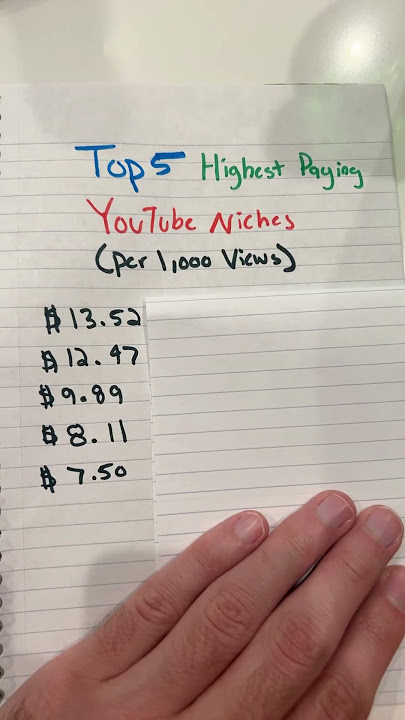 Top 5 Highest Paying
YouTube Niches
(per 1,000 Views)
$13.52
$12.47
$9.89
$8.11
$7.50